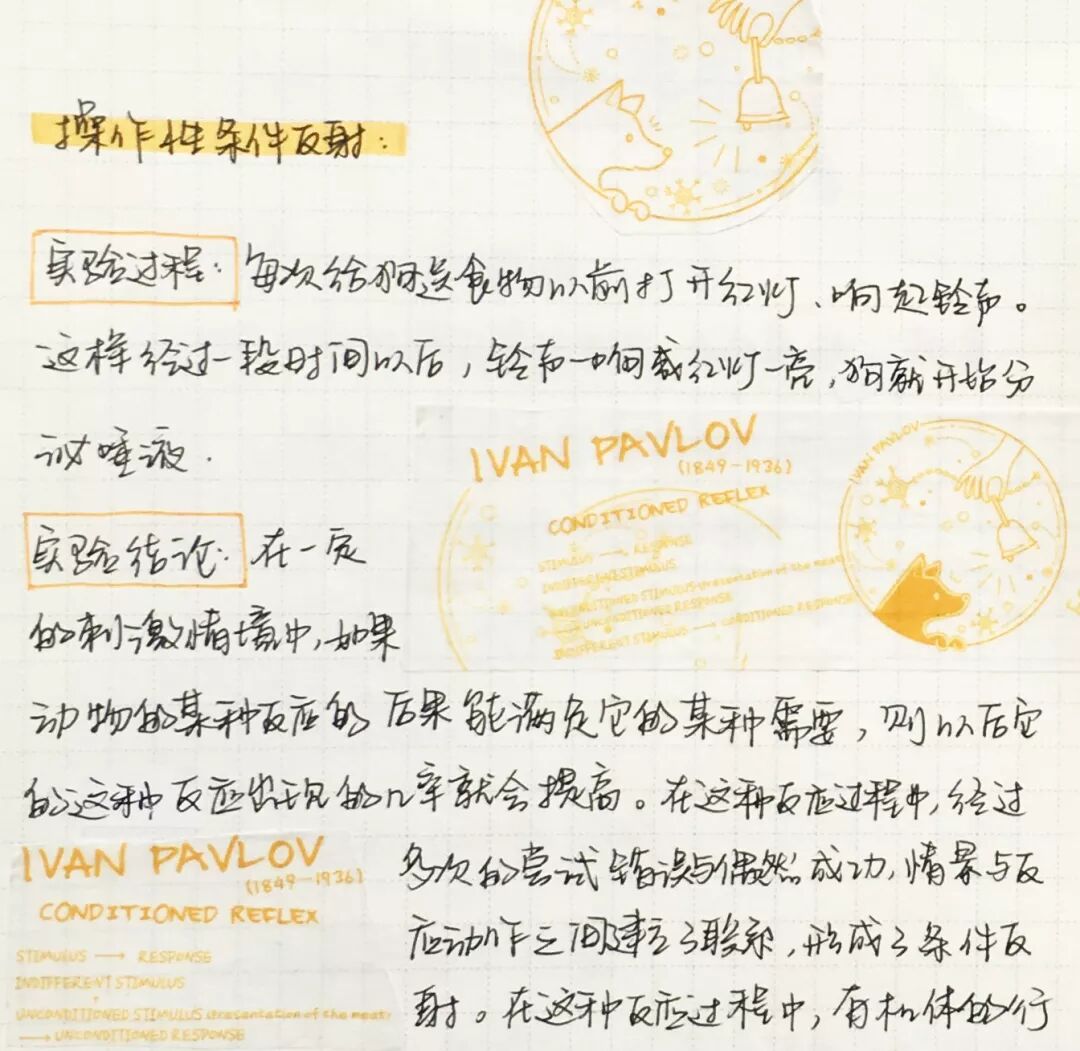 操作性条件反射：
实验过程：每次给狗送食物以前打开红灯、响起铃声。
这样经过一段时间以后，铃声一响或红灯一亮，狗就开始分
泌唾液.
IVAN PAVLOV
(1849-1936)
CONDITIONED REFLEX
STIMULUS → RESPONSE
INDIFFERENT STIMULUS
UNCONDITIONED STIMULUS (presentation of the meat
UNCONDITIONED RESPONSE
INDIFFERENT STIMULUS → CONDITIONED RESPONSE
IVAN PAVLOV
实验结论：在一定
的刺激情境中，如果
动物的某种反应的后果能满足它的某种需要，则以后它
的这种反应出现的几率就会提高。在这种反应过程中，经过
多次的尝试错误与偶然成功，情景与反
应动作之间建立了联系，形成了条件反
射。在这种反应过程中，有机体的行
IVAN PAVLOV
(1849-1936)
CONDITIONED REFLEX
STIMULUS → RESPONSE
INDIFFERENT STIMULUS
+
UNCONDITIONED STIMULUS (presentation of the meat
→ UNCONDITIONED RESPONSE